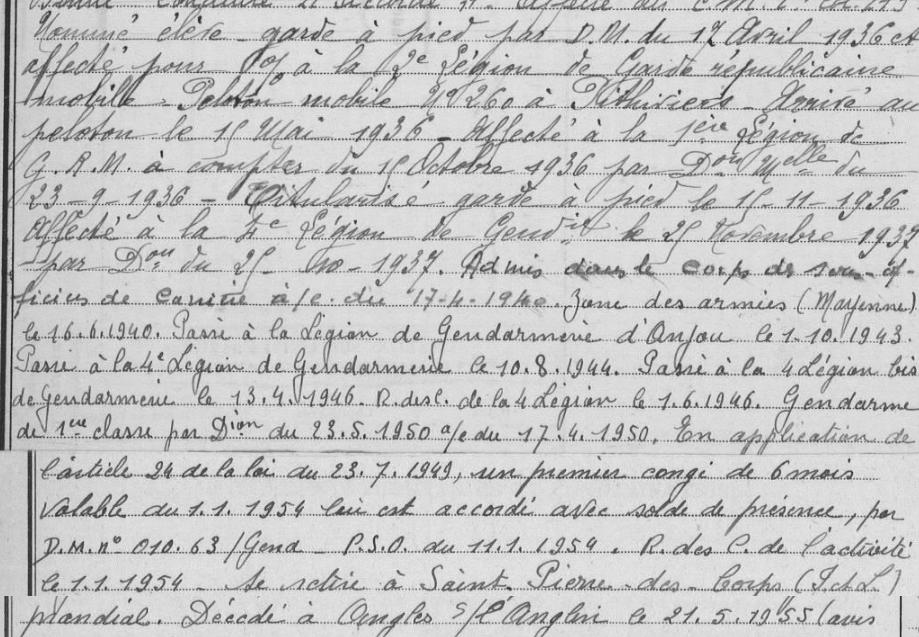 Bonne conduite accordé. Affecté au C.M.
Nommé élève garde à pied par D.M. du 17 Avril 1936 et
affecté pour à la 2e Légion de Garde républicaine
mobile - Peloton mobile No 260 à Pithiviers - Arrivé au
peloton le 15 Mai 1936 - Affecté à la 1ère Légion de
G.R.M. à compter du 15 Octobre 1936 par Don Melle du
23-9-1936 - Titularisé garde à pied le 15-11-1936
Affecté à la 4e Légion de Gendie le 25 Novembre 1937
par Don du 25-10-1937. Admis dans le corps de sous-of-
ficiers de carrière à/c. du 17-4-1940. Zone des armées (Mayenne)
le 16.6.1940. Passé à la Légion de Gendarmerie d'Anjou le 1.10.1943.
Passé à la 4e Légion de Gendarmerie le 10.8.1944. Passé à la 4 Légion bis
de Gendarmerie le 13.4.1946. R. des C. de la 4 Légion le 1.6.1946. Gendarme
de 1ère classe par Dion du 23.5.1950 a/c du 17.4.1950. En application de
l'article 24 de la loi du 23.7.1949, un premier congé de 6 mois
valable du 1.1.1954 lui est accordé avec solde de présence, par
D.M. no 010.63/Gend - P.S.O. du 11.1.1954. R. des C. de l'activité
le 1.1.1954 - Se retire à Saint Pierre-des-Corps (I.et L.)
mondial. Décédé à Angles s/l'Anglin le 21.5.1955 (avis